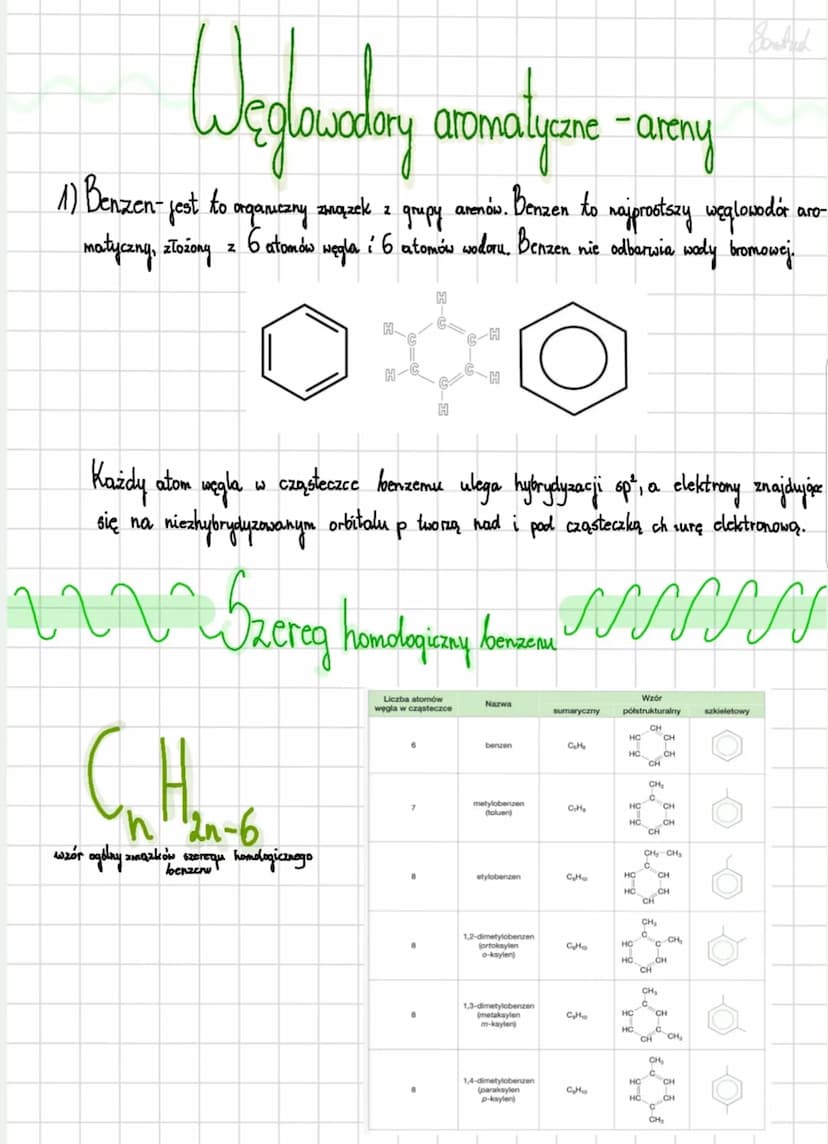 Węglowodory aromatyczne - areny
1) Benzen- jest to organiczny związek z grupy arenów. Benzen to najprostszy węglowodór aro-
matyczny, złożony z 6 atomów węgla i 6 atomów wodoru. Benzen nie odbarwia wody bromowej.
H
H C C H
C
H C C H
C
H
Każdy atom węgla w cząsteczce benzenu ulega hybrydyzacji sp², a elektrony znajdujące
się na niezhybrydyzowanym orbitalu p tworzą nad i pod cząsteczką chmurę elektronową.
Szereg homologiczny benzenu
CnH2n-6
wzór ogólny związków szeregu homologicznego
benzenu
Liczba atomów węgla w cząsteczce Nazwa Wzór
sumaryczny półstrukturalny szkieletowy
6 benzen C₆H₆
CH
HC CH
HC CH
CH
7 metylobenzen (toluen) C₇H₈
CH₃
C
HC CH
HC CH
CH
8 etylobenzen C₈H₁₀
CH₂ CH₃
C
HC CH
HC CH
CH
8 1,2-dimetylobenzen (ortoksylen o-ksylen) C₈H₁₀
CH₃
C
HC C CH₃
HC CH
CH
8 1,3-dimetylobenzen (metaksylen m-ksylen) C₈H₁₀
CH₃
C
HC CH
HC C
CH CH₃
8 1,4-dimetylobenzen (paraksylen p-ksylen) C₈H₁₀
CH₃
C
HC CH
HC CH
C
CH₃